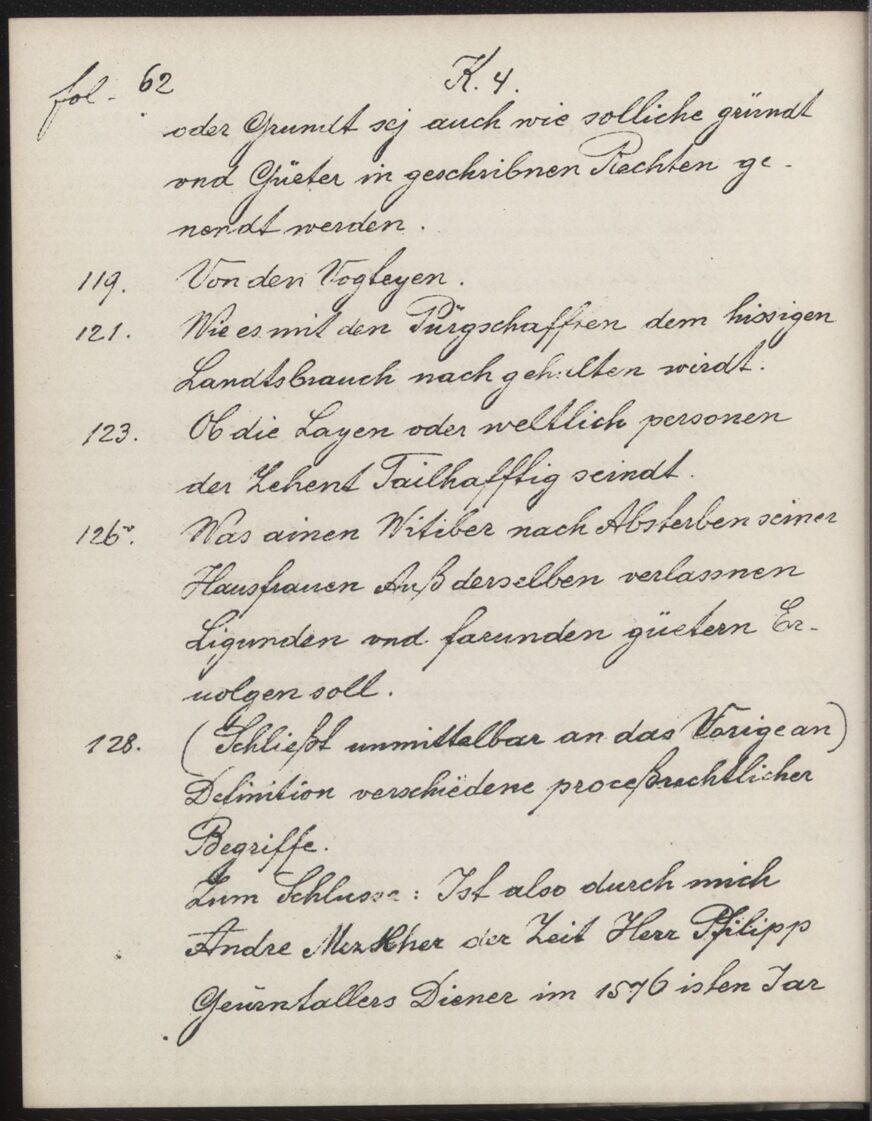 fol. 62 K. 4.
oder Grundt sej auch wie solliche gründt
vnd Güeter in geschribnen Rechten ge-
nendt werden.
119. Von den Vogteyen.
121. Wie es mit den Pürgschafften dem hissigen
Landtsbrauch nach gehalten wirdt.
123. Ob die Layen oder weltlich personen
der Zehent Tailhafftig seindt.
126v. Was ainen Witiber nach Absterben seiner
Hausfrauen Auß derselben verlassnen
Ligunden vnd farunden güetern Er-
uolgen soll.
128. (Schließt unmittelbar an das Vorige an)
Definition verschiedene proceßrechtlicher
Begriffe.
Zum Schlusse: Ist also durch mich
Andre der Zeit Herr Philipp
Geürntallers Diener im 1576 isten Jar